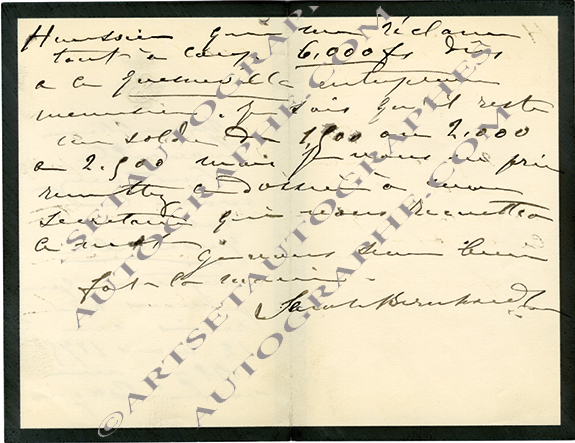 Huissier qui me réclame
tout à coup 6,000 fs dûs
a ce Quesneville entrepreneur
menuisier. Je sais qu'il reste
un solde de 1,500 ou 2.000
a 2.500 mais je vous en prie
remettez ce dossier à mon
secretaire qui vous remettra
ce mot
Je vous serre bien
fort la main.
Sarah Bernhardt
©ARTSETAUTOGRAPHES.COM
AUTOGRAPHE.COM